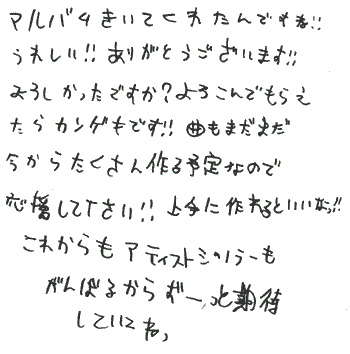 アルバムきいてくれたんですね!!
うれしい!! ありがとうございます!!
よろしかったですか?よろこんでもらえ
たらカンゲキです!! 曲もまだまだ
今からたくさん作る予定なので
応援して下さい!! 上手に作れるといいなっ!!
これからも アーティスト
がんばるからずーっと期待
していてね。